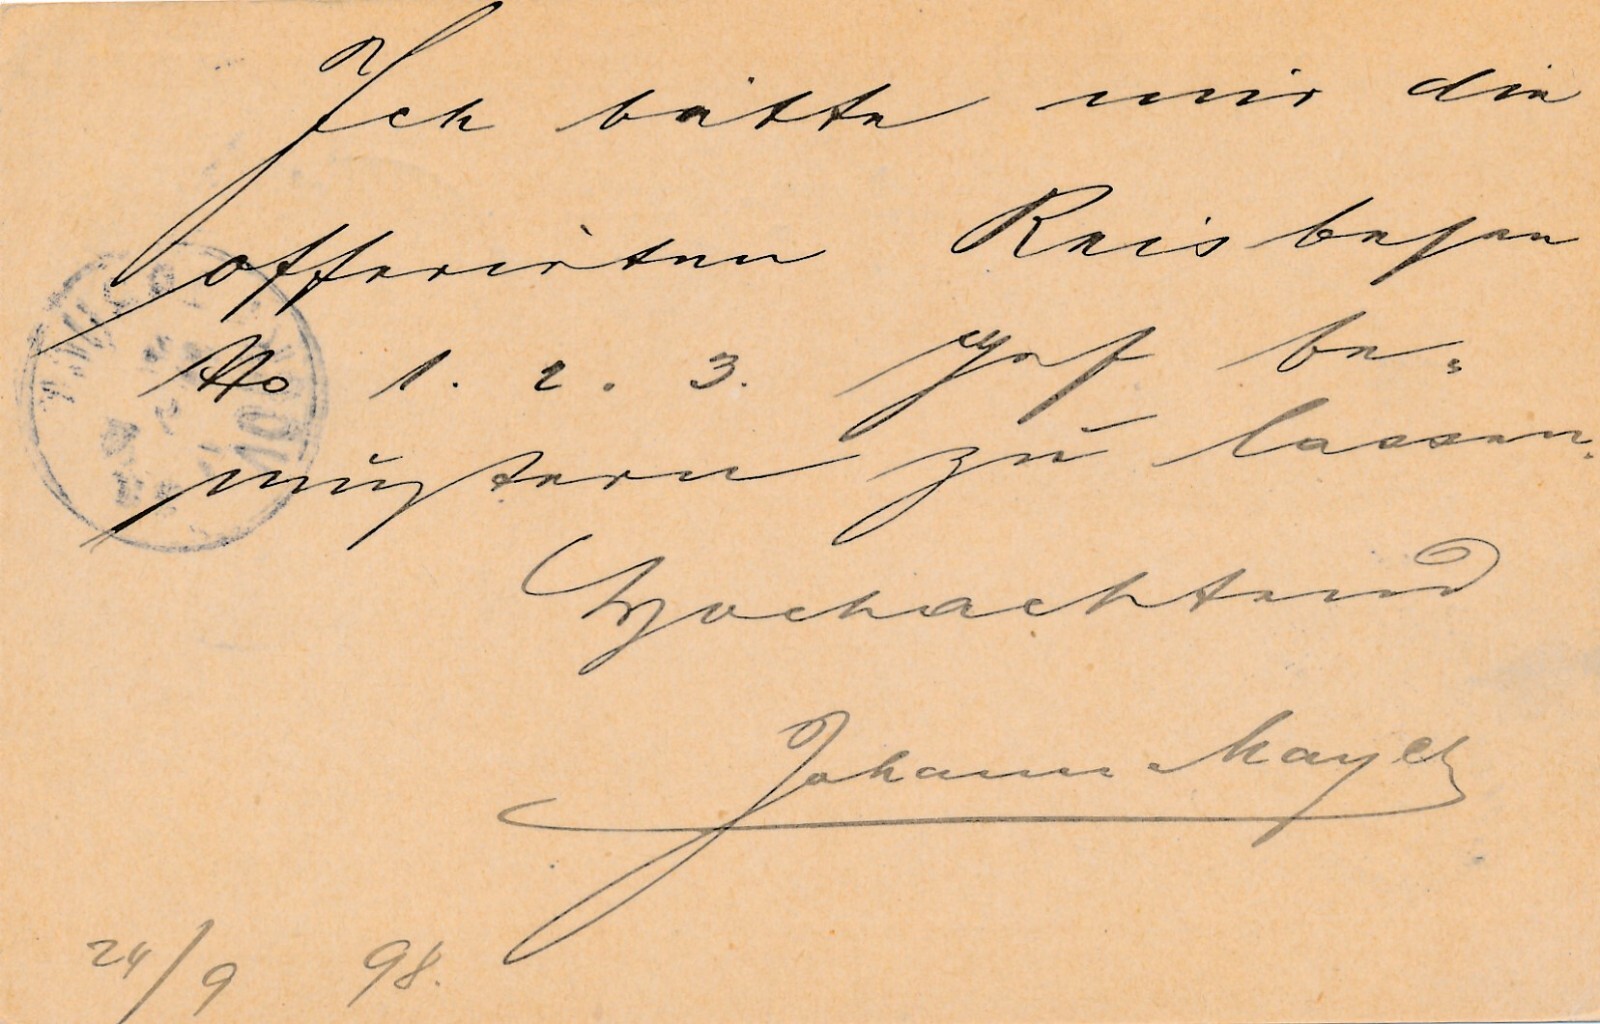 Ich bitte mir die
offerirten Reisbesen
No 1. 2. 3. gef be-
mustern zu lassen.
Hochachtend
Johann Mayer
24/9 98.